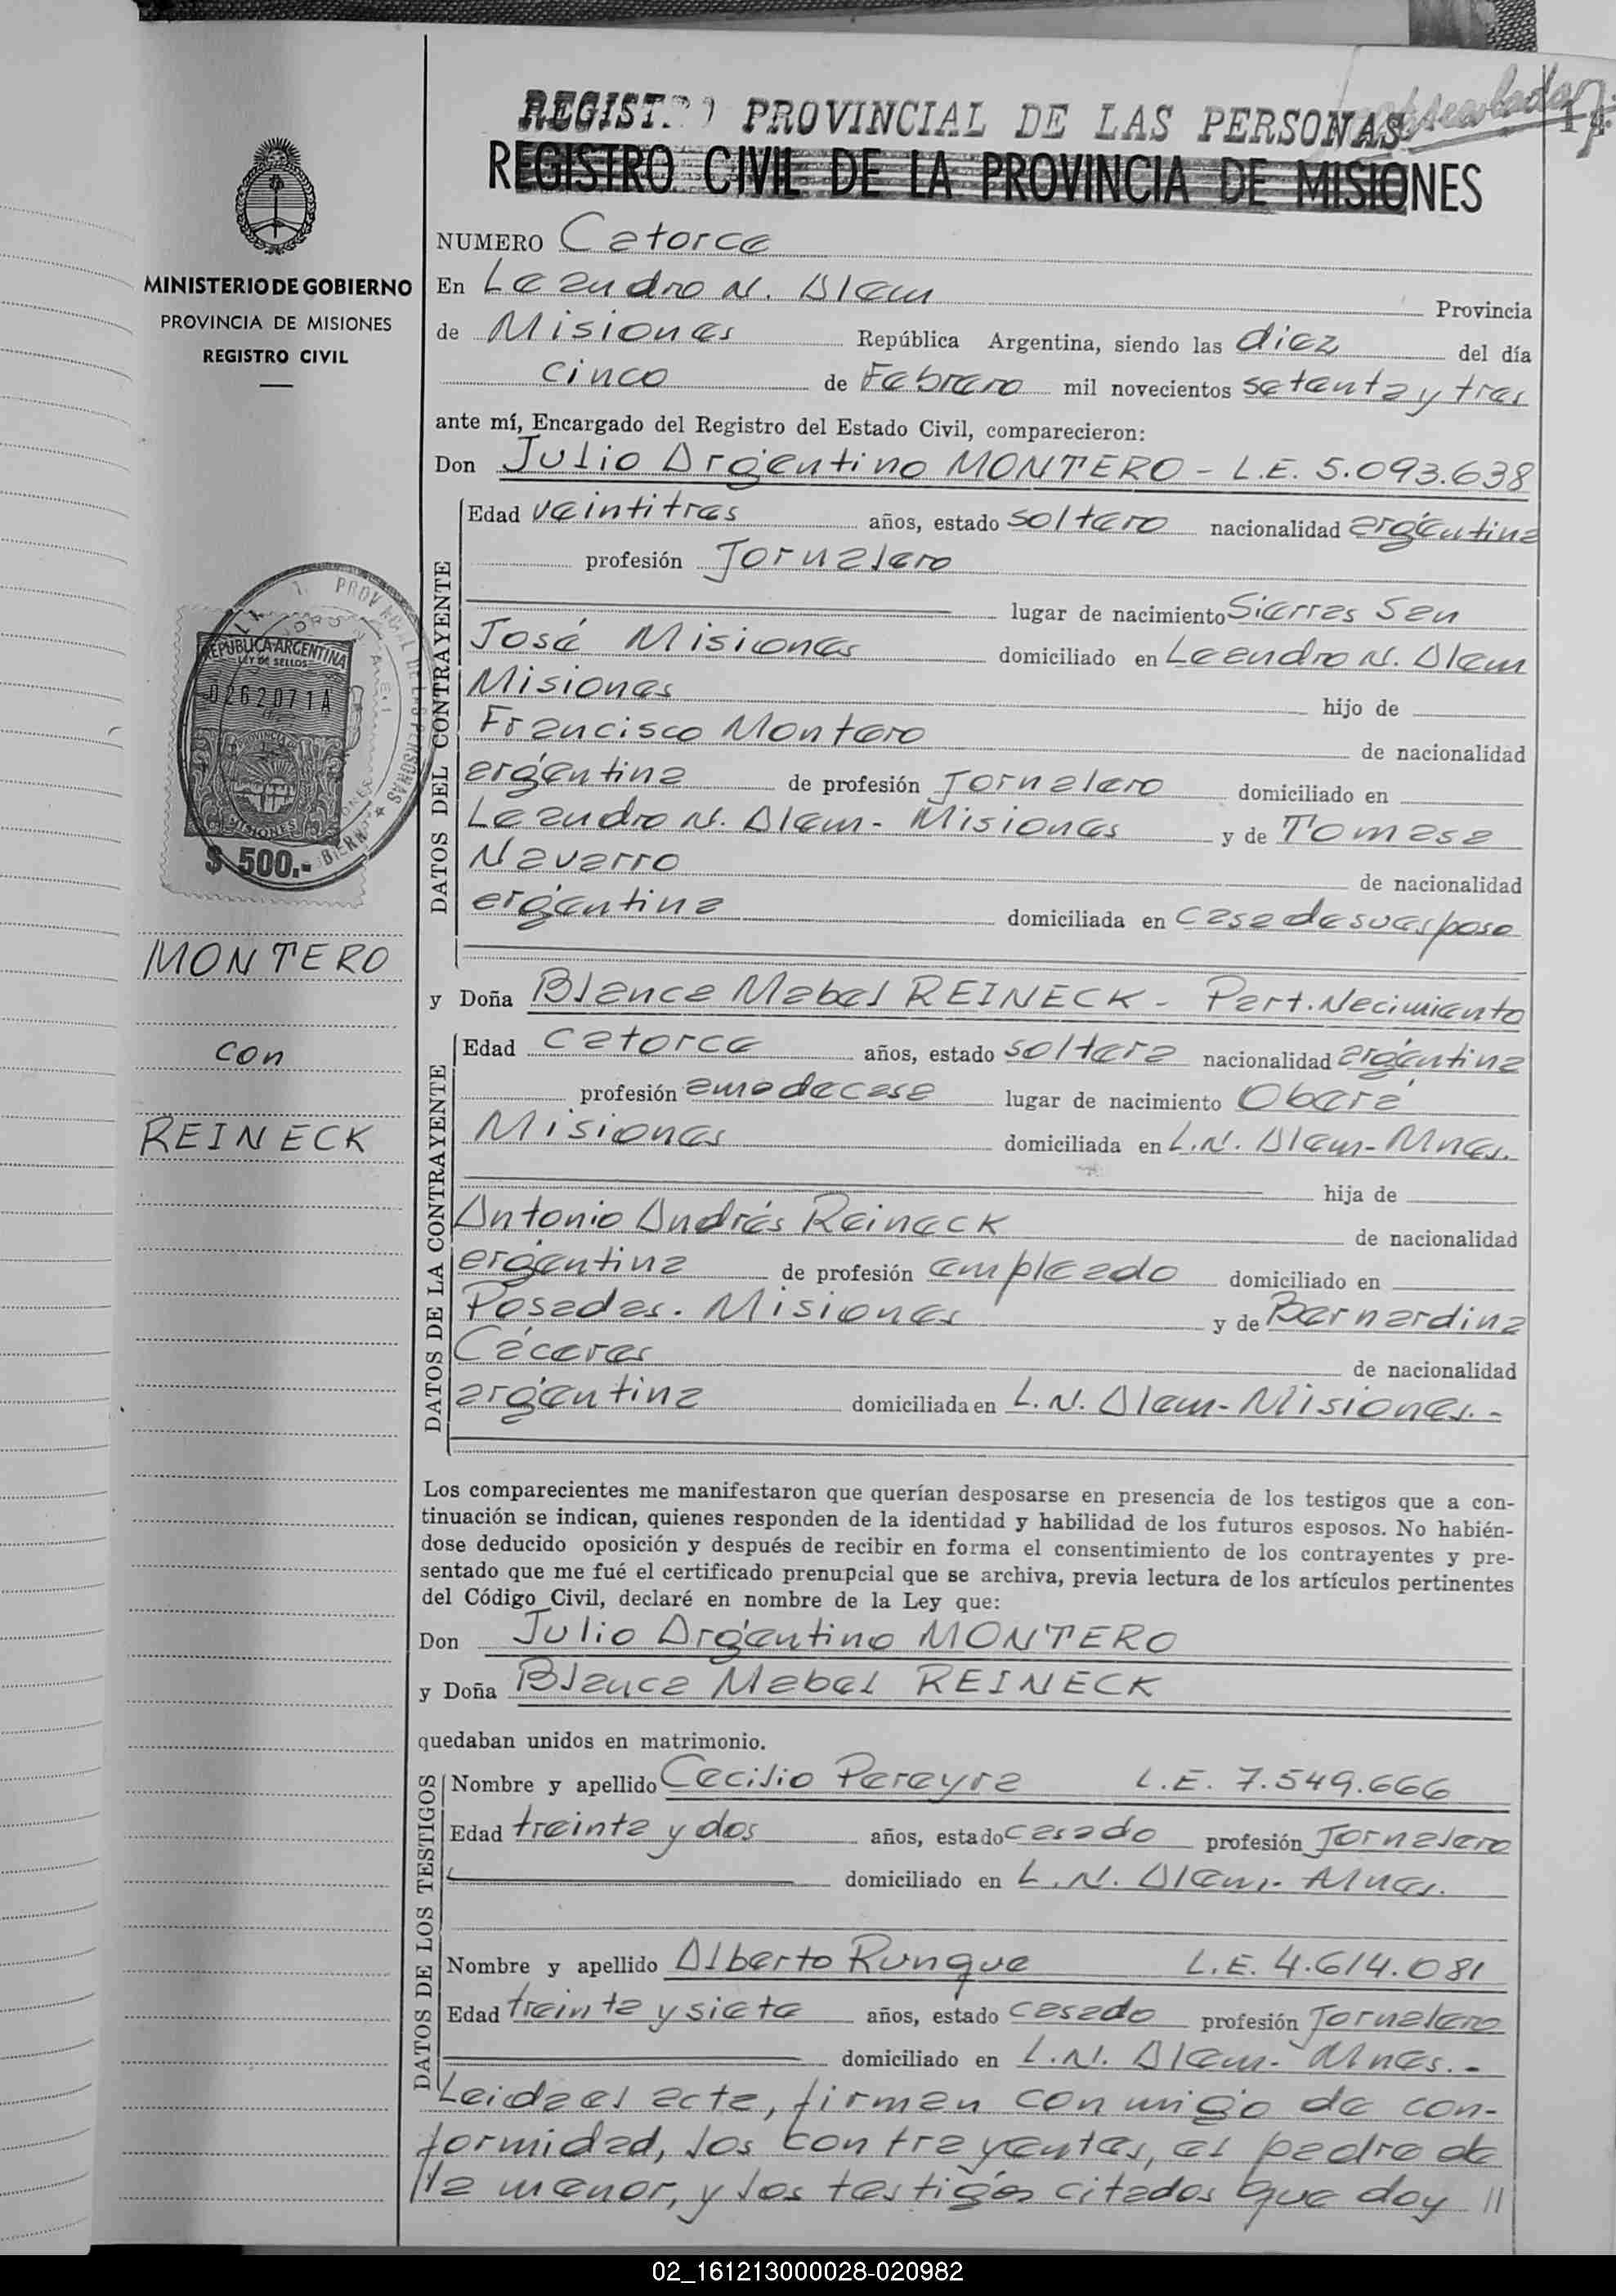 REGISTRO PROVINCIAL DE LAS PERSONAS
17
14
REGISTRO CIVIL DE LA PROVINCIA DE MISIONES
MINISTERIO DE GOBIERNO
PROVINCIA DE MISIONES
REGISTRO CIVIL
REPUBLICA ARGENTINA
LEY DE SELLOS
0262071A
MISIONES
$ 500.-
MONTERO
con
REINECK
NUMERO Catorce
En Leandro N. Alem Provincia
de Misiones República Argentina, siendo las diez del día
cinco de Febrero mil novecientos setenta y tres
ante mí, Encargado del Registro del Estado Civil, comparecieron:
Don Julio Argentino MONTERO - L.E. 5.093.638
DATOS DEL CONTRAYENTE
Edad veintitres años, estado soltero nacionalidad argentina
profesión Jornalero
lugar de nacimiento Sierras San
José Misiones domiciliado en Leandro N. Alem
Misiones hijo de
Francisco Montero de nacionalidad
argentina de profesión Jornalero domiciliado en
Leandro N. Alem - Misiones y de Tomasa
Navarro de nacionalidad
argentina domiciliada en casa de su esposo
y Doña Blanca Mabel REINECK - Part. Nacimiento
DATOS DE LA CONTRAYENTE
Edad catorce años, estado soltera nacionalidad argentina
profesión ama de casa lugar de nacimiento Oberá
Misiones domiciliada en L.N. Alem - Mnes.
hija de
Antonio Andrés Reineck de nacionalidad
argentina de profesión empleado domiciliado en
Posadas. Misiones y de Bernardina
Cáceres de nacionalidad
argentina domiciliada en L. N. Alem - Misiones. -
Los comparecientes me manifestaron que querían desposarse en presencia de los testigos que a con-
tinuación se indican, quienes responden de la identidad y habilidad de los futuros esposos. No habién-
dose deducido oposición y después de recibir en forma el consentimiento de los contrayentes y pre-
sentado que me fué el certificado prenupcial que se archiva, previa lectura de los artículos pertinentes
del Código Civil, declaré en nombre de la Ley que:
Don Julio Argentino MONTERO
y Doña Blanca Mabel REINECK
quedaban unidos en matrimonio.
DATOS DE LOS TESTIGOS
Nombre y apellido Cecilio Pereyra L.E. 7.549.666
Edad treinta y dos años, estado casado profesión Jornalero
domiciliado en L. N. Alem - Mnes.
Nombre y apellido Alberto Runque L.E. 4.614.081
Edad treinta y siete años, estado casado profesión Jornalero
domiciliado en L.N. Alem - Mnes. -
Leida el acta, firman conmigo de con-
formidad, los contrayentes, el padre de
la menor, y los testigos citados que doy //
02_161213000028-020982